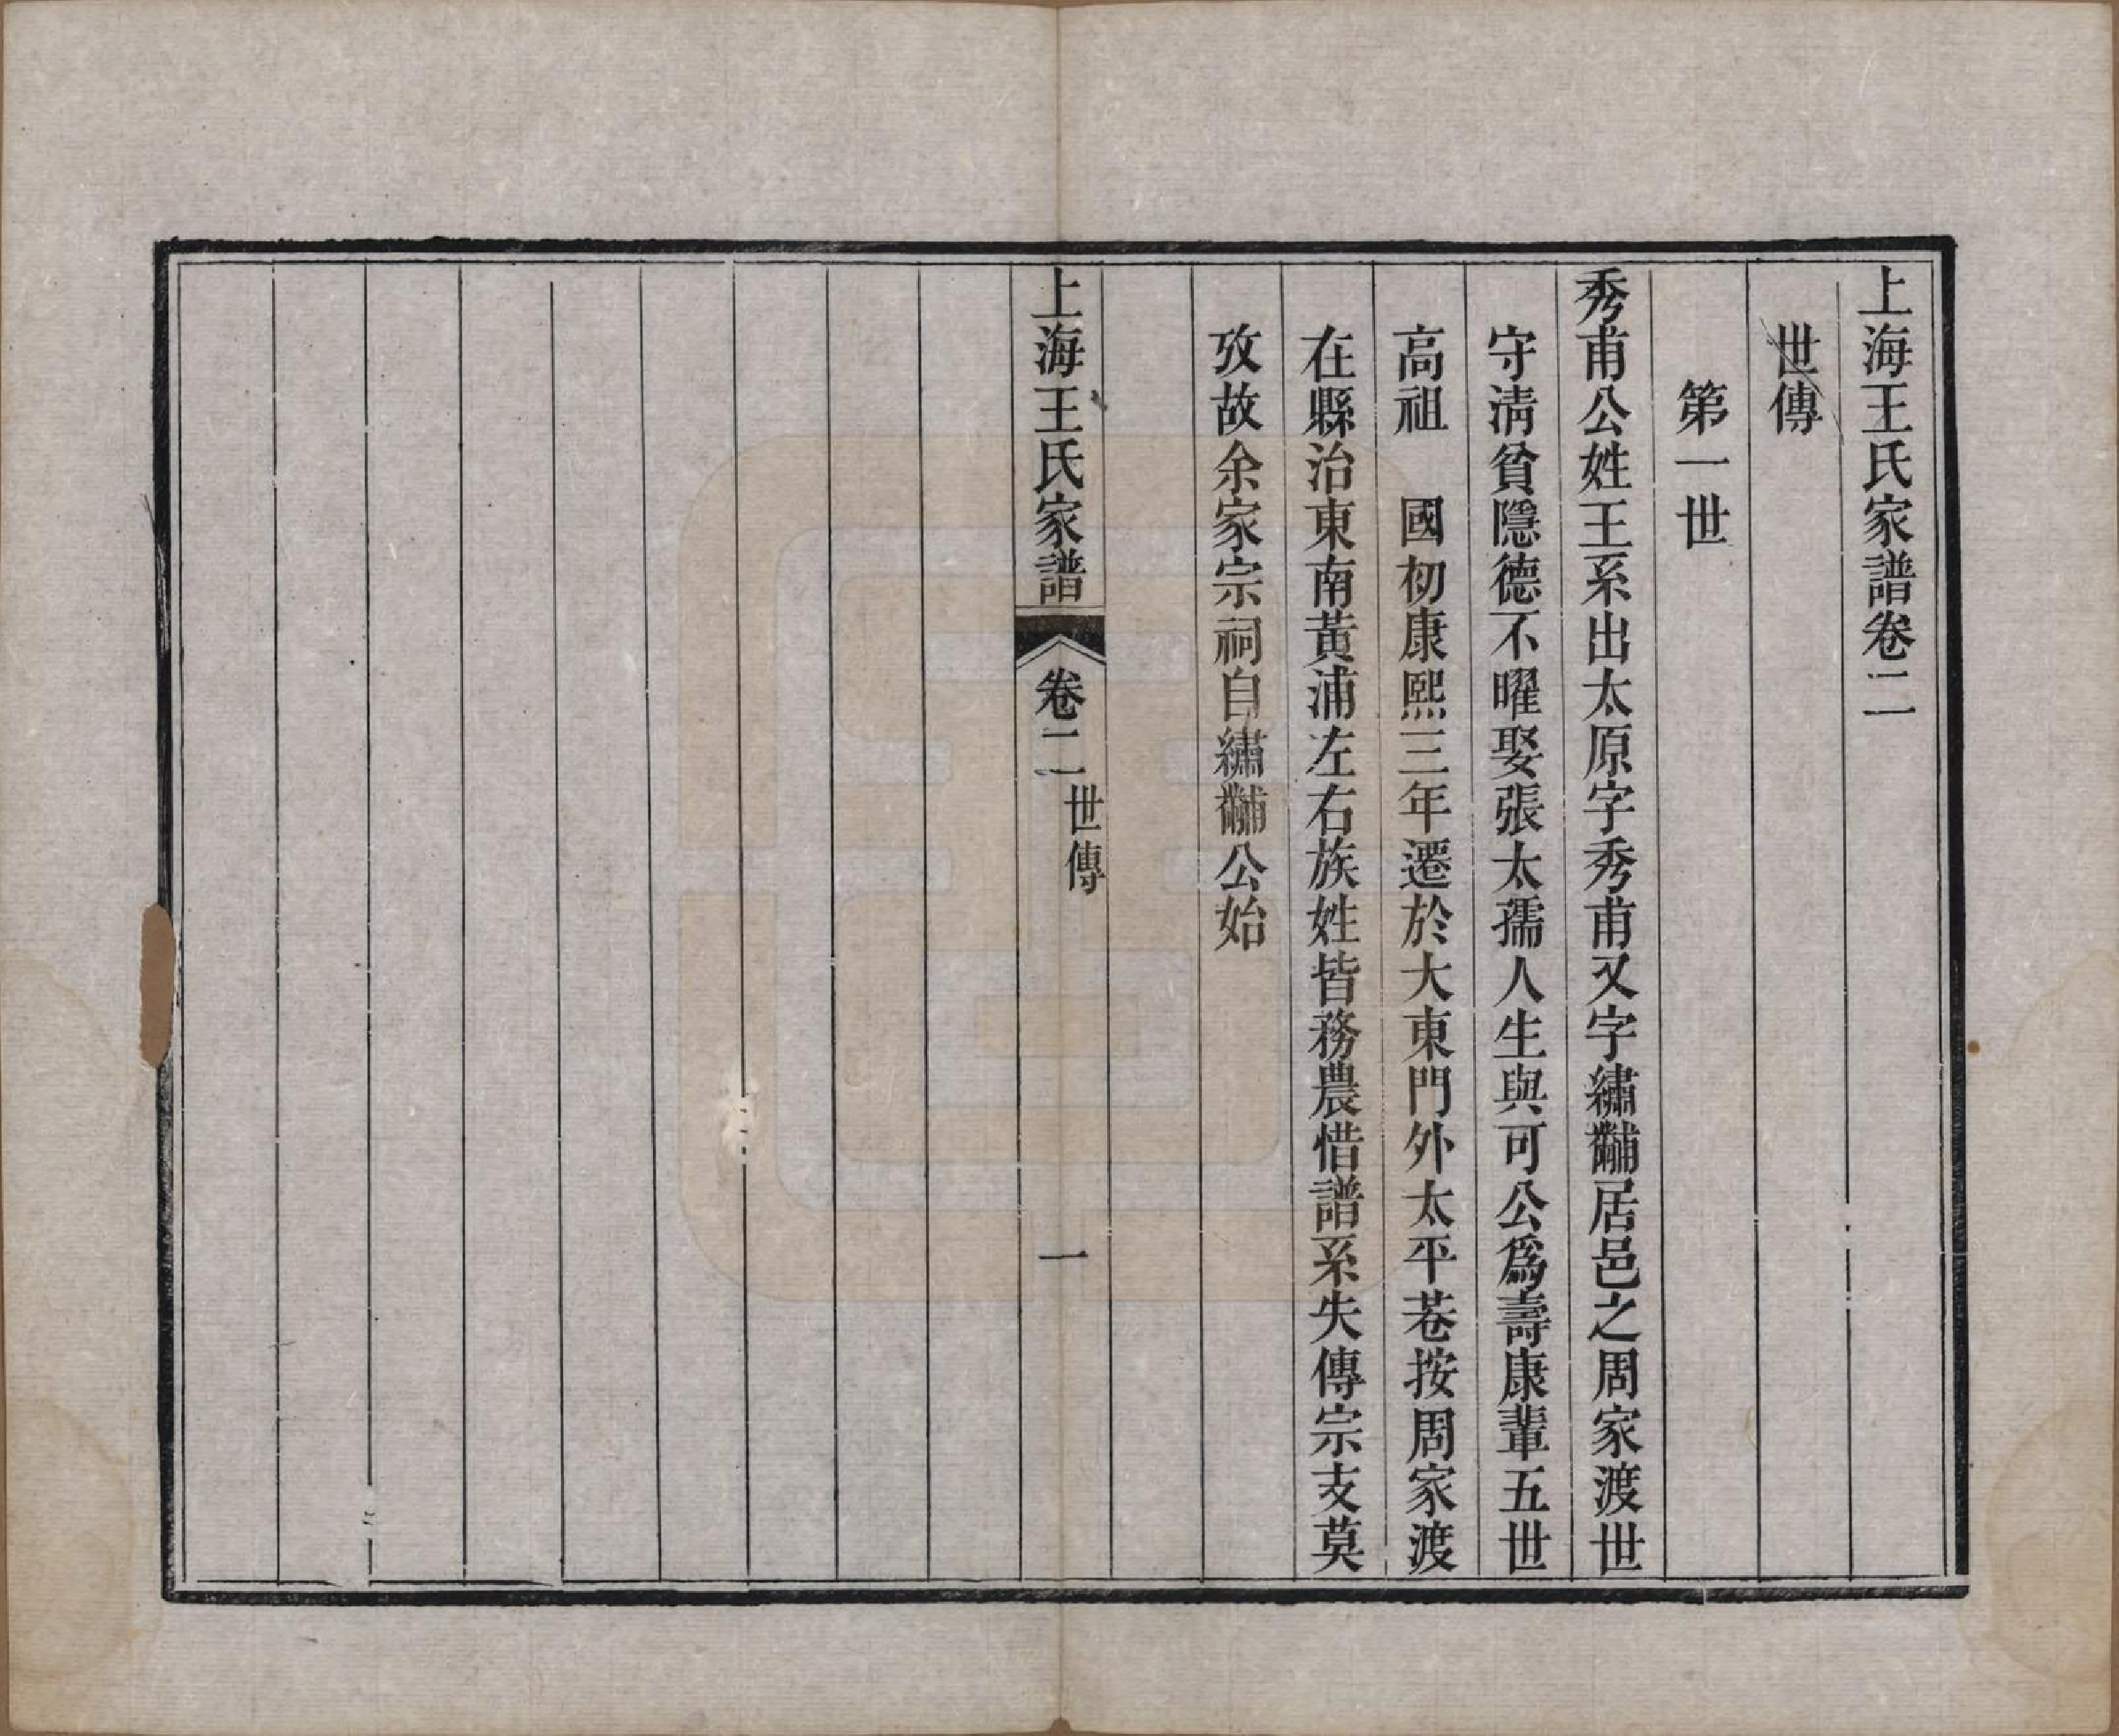 上海王氏家譜卷二
世傳
第一世
秀甫公姓王系出太原字秀甫又字繡黼居邑之周家渡世
守淸貧隱德不曜娶張太孺人生與可公爲壽康輩五世
高祖　國初康熙三年遷於大東門外太平巷按周家渡
在縣治東南黃浦左右族姓皆務農惜譜系失傳宗支莫
攷故余家宗祠自繡黼公始
上海王氏家譜
卷二
世傳
一